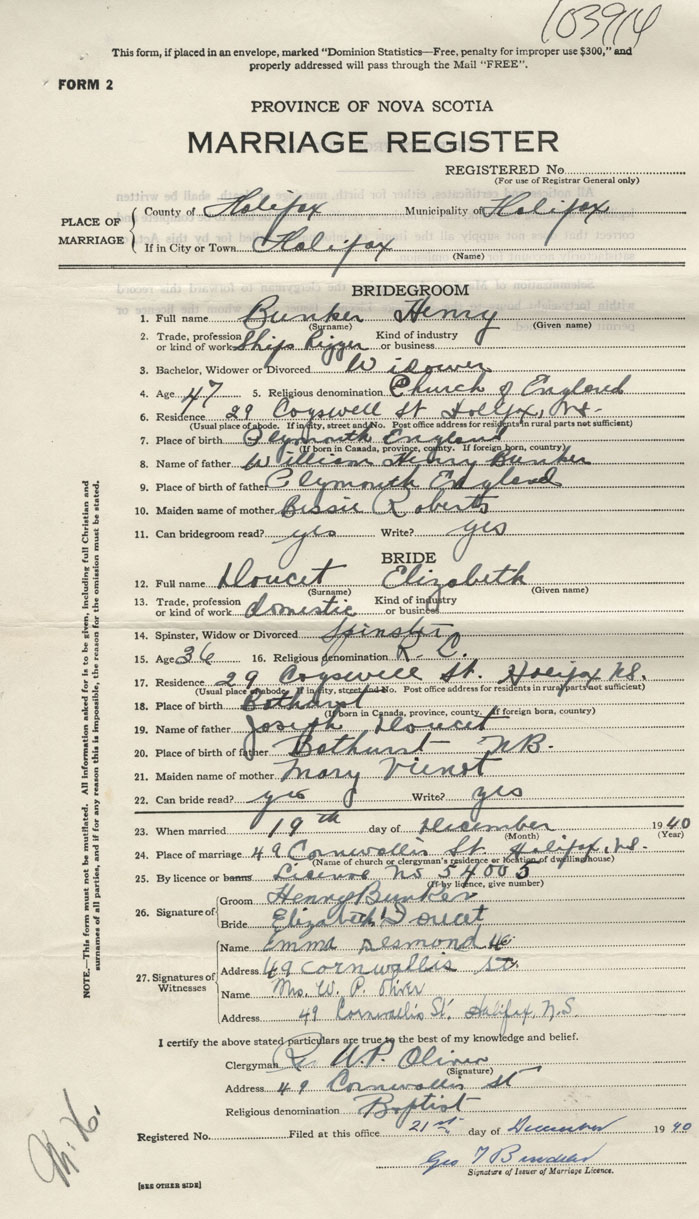 103914
This form, if placed in an envelope, marked "Dominion Statistics—Free, penalty for improper use $300," and
properly addressed will pass through the Mail "FREE".
FORM 2
PROVINCE OF NOVA SCOTIA
MARRIAGE REGISTER
REGISTERED No.
(For use of Registrar General only)
PLACE OF MARRIAGE
County of Halifax Municipality of Halifax
If in City or Town Halifax
(Name)
BRIDEGROOM
1. Full name Bunker Henry
(Surname) (Given name)
2. Trade, profession or kind of work Ships Rigger Kind of industry or business
3. Bachelor, Widower or Divorced Widower
4. Age 47 5. Religious denomination Church of England
6. Residence 29 Cogswell St Halifax, N.S.
(Usual place of abode. If in city, street and No. Post office address for residents in rural parts not sufficient)
7. Place of birth Plymouth England
(If born in Canada, province, county. If foreign born, country)
8. Name of father William Henry Bunker
9. Place of birth of father Plymouth England
10. Maiden name of mother Bessie Roberts
11. Can bridegroom read? yes Write? yes
BRIDE
12. Full name Doucet Elizabeth
(Surname) (Given name)
13. Trade, profession or kind of work domestic Kind of industry or business
14. Spinster, Widow or Divorced Spinster
15. Age 36 16. Religious denomination R. C.
17. Residence 29 Cogswell St. Halifax N.S.
(Usual place of abode. If in city, street and No. Post office address for residents in rural parts not sufficient)
18. Place of birth Bathurst
(If born in Canada, province, county. If foreign born, country)
19. Name of father Joseph Doucet
20. Place of birth of father Bathurst N.B.
21. Maiden name of mother Mary Vienot
22. Can bride read? yes Write? yes
23. When married 19th day of December 1940
(Month) (Year)
24. Place of marriage 49 Cornwallis St. Halifax, N.S.
(Name of church or clergyman's residence or location of dwelling house)
25. By licence or banns License No 54005
(If by licence, give number)
26. Signature of
Groom Henry Bunker
Bride Elizabeth Doucet
27. Signatures of Witnesses
Name Emma Desmond
Address 49 Cornwallis St.
Name Mrs. W. P. Oliver
Address 49 Cornwallis St. Halifax, N.S.
I certify the above stated particulars are true to the best of my knowledge and belief.
Clergyman W.P. Oliver
(Signature)
Address 49 Cornwallis St
Religious denomination Baptist
Registered No. Filed at this office 21st day of December 1940
Geo
Signature of Issuer of Marriage Licence.
[SEE OTHER SIDE]
NOTE.—This form must not be mutilated. All information asked for is to be given, including full Christian and
surnames of all parties, and if for any reason this is impossible, the reason for the omission must be stated.